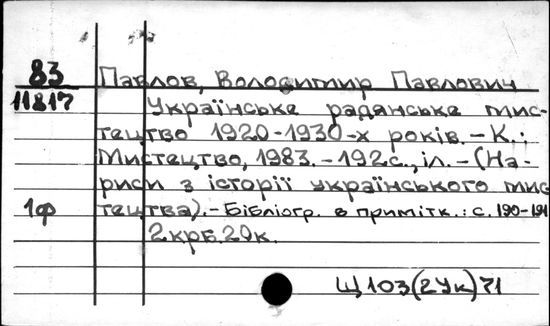 83 Павлов, Володимир Павлович
11817 Українське радянське мис-
тецтво 1920-1930-х років. - К.:
Мистецтво, 1983. - 192с., іл. - (На-
риси з історії українського мис
1ф тецтва). - Бібліогр. в приміт​к.: с. 190-191
2крб. 20к.
Щ103(2Ук)71